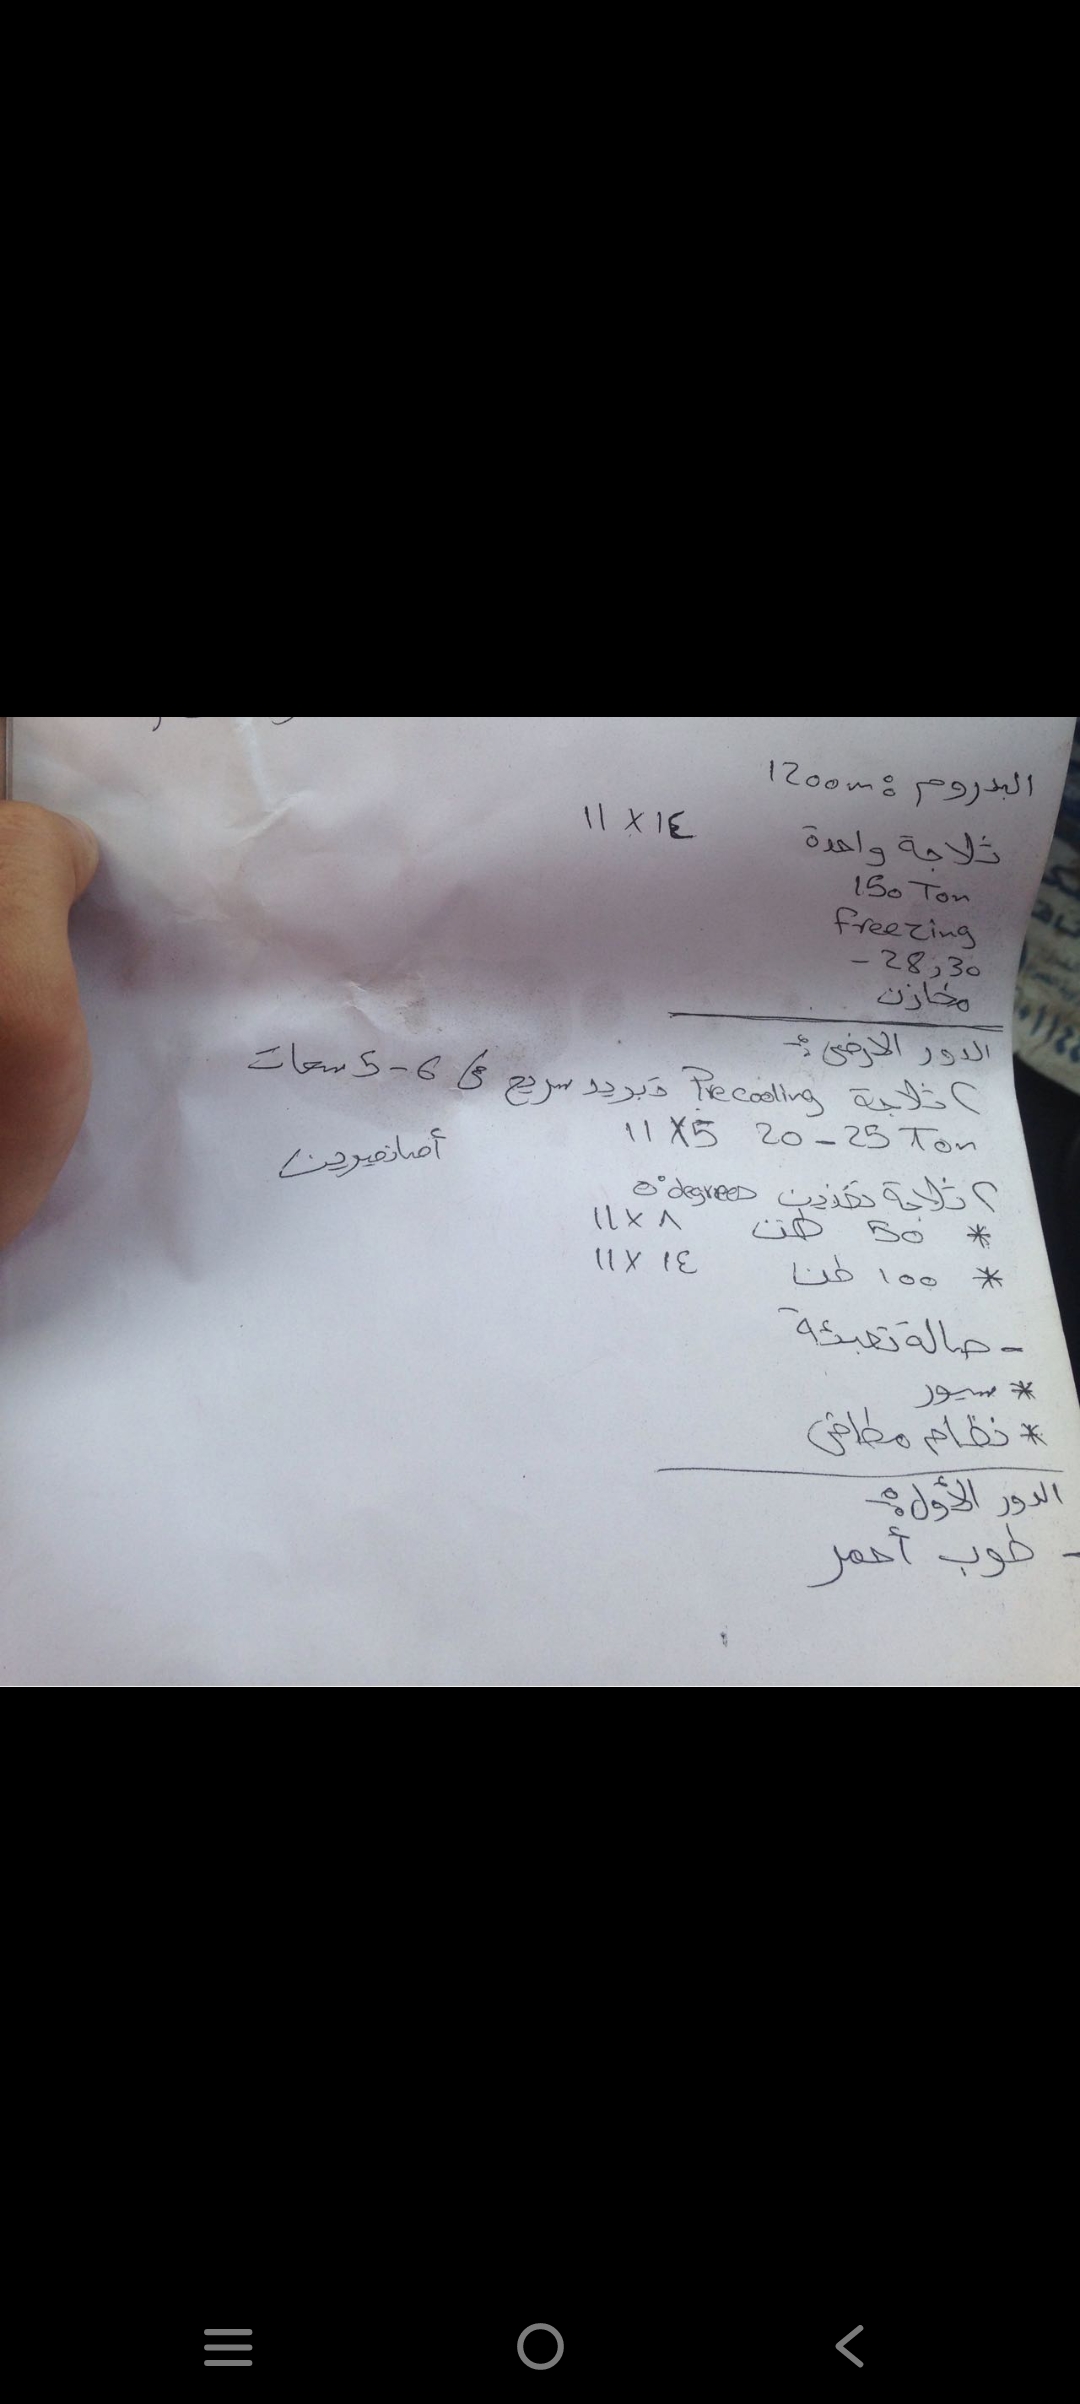 البدروم : 1200m
ثلاجة واحدة ١١ X ١٤
150 Ton
freezing
- 28,30
مخازن
الدور الارضى :-
٢ ثلاجة Precooling تبريد سريع فى 6 - 5 ساعات
20 - 25 Ton 11 X 5
أسانسيرين
٢ ثلاجة تخزين 0° degrees
* 50 طن ١١ X ٨
* ١٠٠ طن ١١ X ١٤
- صالة تعبئة
* سيور
* نظام مطافى
الدور الأول :-
- طوب أحمر